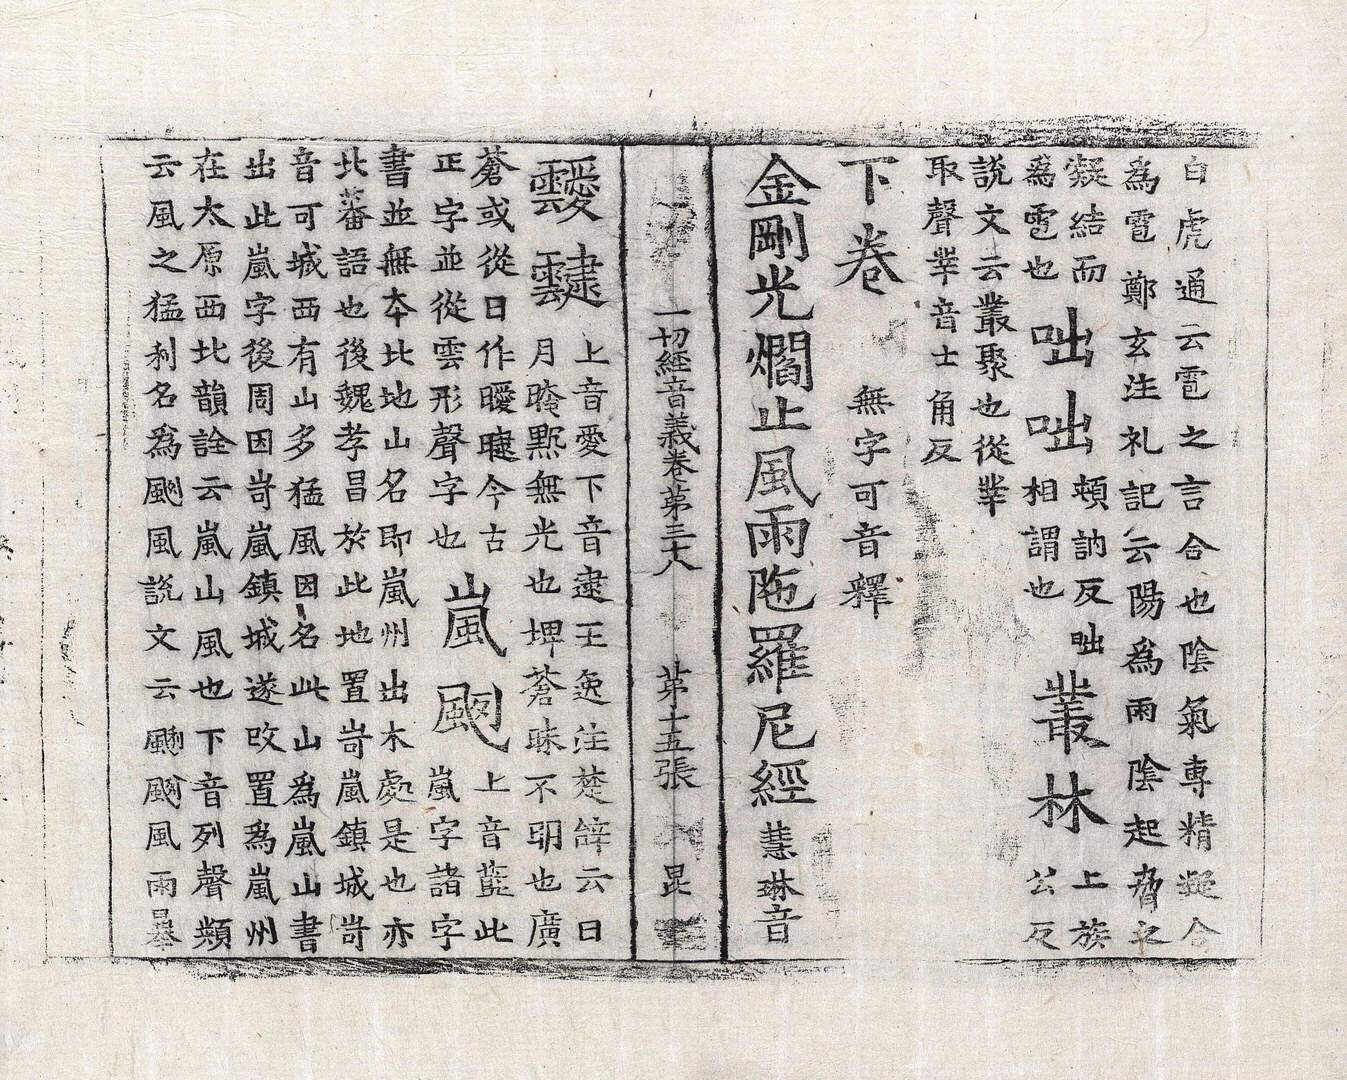 白虎通云雹之言合也陰氣専精凝合
為雹鄭玄注礼記云陽為雨陰起脅之
凝結而
為雹也
咄咄
頓訥反咄
相謂也
叢林
上族
公反
説文云叢聚也從丵
取聲丵音士角反
下卷
無字可音釋
金剛光爓止風雨陁羅尼經
慧琳音
一切經音義卷第三十八
第十五張
昆
靉靆
上音愛下音逮王逸注楚辝云日
月晻黕無光也埤蒼昧不明也廣
蒼或從日作曖曃今古
正字並從雲形聲字也
嵐颲
上音藍此
嵐字諸字
書並無本北地山名即嵐州出木處是也亦
北蕃語也後魏孝昌於此地置岢嵐鎮城岢
音可城西有山多猛風因名此山為嵐山書
出此嵐字後周因岢嵐鎮城遂改置為嵐州
在太原西北韻詮云嵐山風也下音列聲類
云風之猛利名為颲風説文云颲颲風雨暴